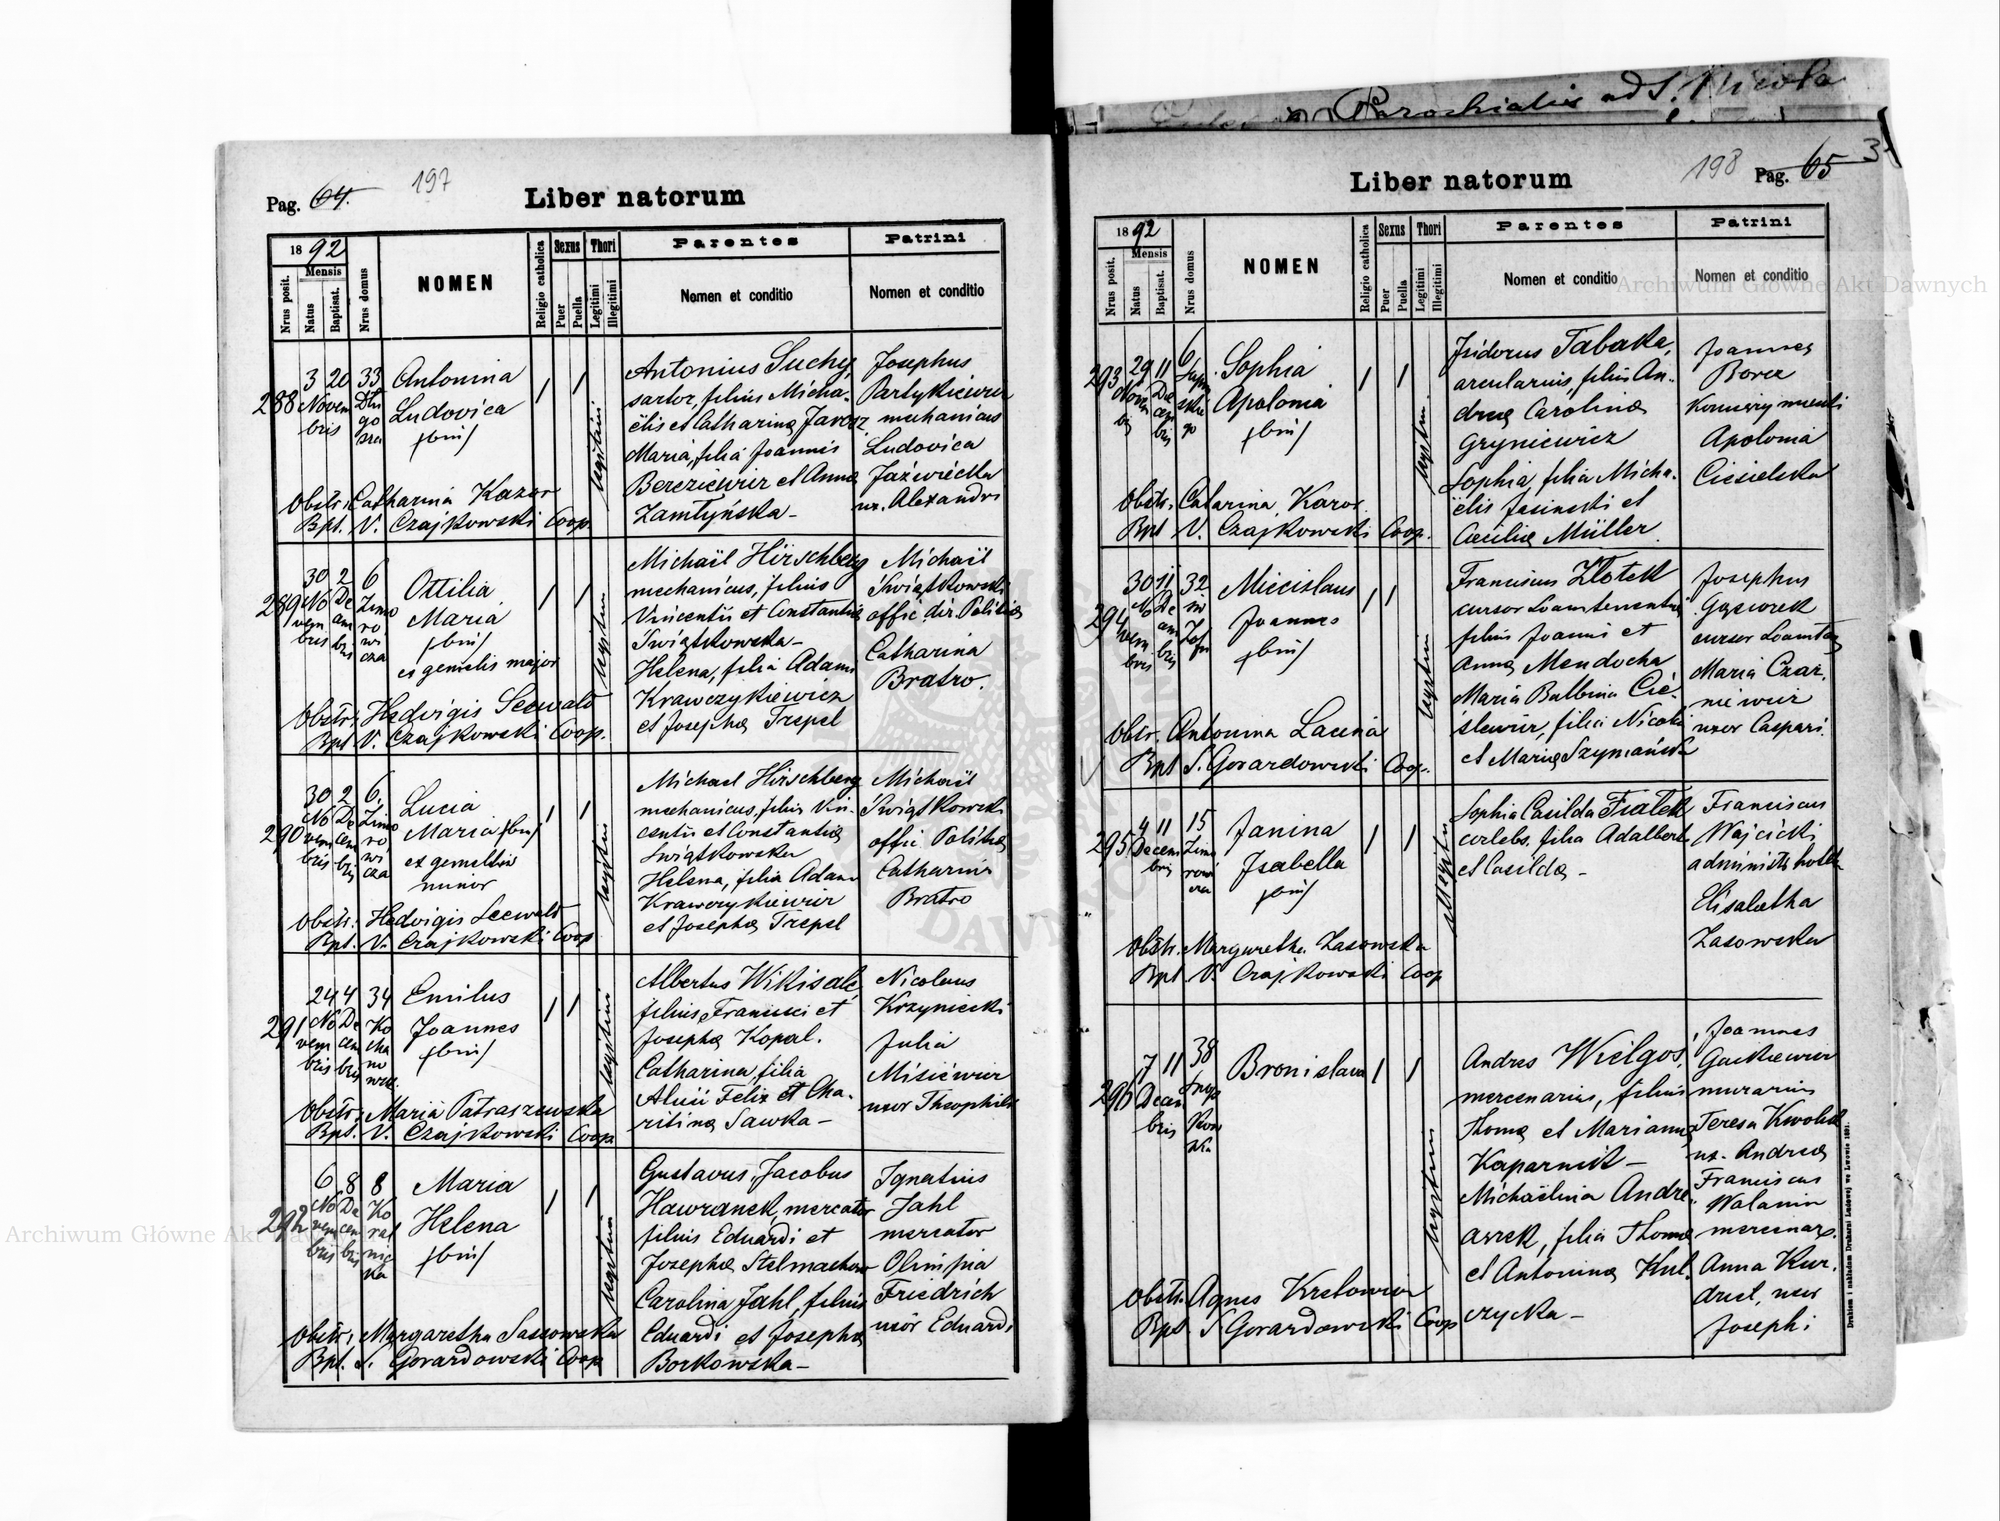 Parochialis ad S. Nicola
Pag. 64. 197
Liber natorum
18 92
Mensis
Nrus posit.
Natus
Baptisat.
Nrus domus
NOMEN
Religio catholica
Sexus
Puer
Puella
Thori
Legitimi
Illegitimi
Parentes
Nomen et conditio
Patrini
Nomen et conditio
288
3 Novembris
20
33 Dłu
go
sza
Antonina
Ludovica
/bin/
legitimi
Antonius Suchy,
sartor, filius Micha-
ëlis et Catharina Jarosz
Maria, filia Joannis
Berezicwicz et Anna
Zamłyńska-
Josephus
Partykiewicz
mechanicus
Ludovica
Jaźwiecka
ux. Alexandri
Obstr. Catharina Kazor
Bpt. V. Czajkowski Coop.
289
30 No
vem
bris
2 De
cem
bris
6
Zimo
ro
wi
cza
Ottilia
Maria
/bin/
ex gemelis major
legitimi
Michaël Hirschberg
mechanicus, filius
Vincentii et Constantia
Swiątkowska-
Helena, filia Adami
Krawczykiewicz
et Josepha Trepel
Michaël
Świątkowski
offic. dir. Politia
Catharina
Bratro.
Obstr. Hedvigis Seewald
Bpt. V. Czajkowski Coop.
290
30 No
vem
bris
2 De
cem
bris
6.
Zimo
ro
wi
cza
Lucia
Maria /bin/
ex gemellis
minor
legitimi
Michael Hirschberg
mechanicus, filius Vin-
centii et Constantia
Swiątkowska
Helena, filia Adami
Krawczykiewicz
et Josepha Trepel
Michaël
Świątkowski
offic. Politia
Catharina
Bratro
Obstr. Hedvigis Seewald
Bpt. V. Czajkowski Coop
291
24 No
vem
bris
4 De
cem
bris
34
Ko
cha
no
wsk.
Emilus
Joannes
/bin/
legitimi
Albertus Wikisalé
filius Francisci et
Josepha Kopal.
Catharina, filia
Aloisi Felix et Cha-
ritina Sawka-
Nicolaus
Krzyniecki
Julia
Misiéwicz
uxor Theophili
Obstr. Maria Patraszewska
Bpt. V. Czajkowski Coop
292
6 No
vem
bris
8 De
cem
bris
8
Ko
ral
nic
ka
Maria
Helena
/bin/
legitimi
Gustavus, Jacobus
Hawranek, mercator
filius Eduardi et
Josepha Stelmachow
Carolina Jahl, filius
Eduardi et Josepha
Borkowska-
Ignatius
Jahl
mercator
Olimpia
Friedrich
uxor Eduardi
Obstr. Margaretha Sassowska
Bpt. S. Gorardowski Coop
198 Pag. 65 3
Liber natorum
18 92
Mensis
Nrus posit.
Natus
Baptisat.
Nrus domus
NOMEN
Religio catholica
Sexus
Puer
Puella
Thori
Legitimi
Illegitimi
Parentes
Nomen et conditio
Patrini
Nomen et conditio
293
29
11
De
cem
bris
6
Sophia
Apolonia
/bin/
Isidorus Tabaka,
arcularius, filius An-
drea Carolina
Gryniewicz
Sophia, filia Micha-
ëlis Jasinski et
Cacilia Müller.
Joannes
Borcz
Apolonia
Ciesielska
Obstr. Catarina Karor
Bpt V. Czajkowski Coop.
294
30 No
vem
bris
11 De
cem
bris
32
Miecislaus
Joannes
/bin/
Franciscus Złotek
filius Joanni et
Anna Mendocha
Maria Balbina Cié-
ślewicz, filia Nicolai
et Maria Szymańska
Josephus
Gąsiorek
Maria Czar-
niewicz
uxor Caspari.
Obstr. Antonina Lacina
Bpt S. Gorardowski Coop.
295
4
Decem
bris
11
15
Zimo
rowi
cza
Janina
Isabella
/bin/
illegitimi
Sophia Casilda Fiałek
coelebs, filia Adalberti
et Casilda -
Franciscus
Wajcicki
Elisabetha
Zasowska
Obstr. Margaretha Zasowska
Bpt V. Czajkowski Coop
296
7
Decem
bris
11
38
Bronislava
legitimi
Andres Wielgos,
mercenarius, filius
Thoma et Marianna
Kaparnik-
Michaëlina Andre-
aszek, filia Thoma
et Antonina Kul-
czycka-
Joannes
Gackiewicz
murarius
Teresa Kwolek
ux. Andrea
Franciscus
Walanin
mercenar.
Anna Kur-
drel, uxor
Josephi
Obstr. Agnes Kretowicz
Bpt. S Gorardowski Coop
Drukiem i nakładem Drukarni Ludowej we Lwowie 1891.
Archiwum Główne Akt Dawnych
Archiwum Główne Akt Dawnych